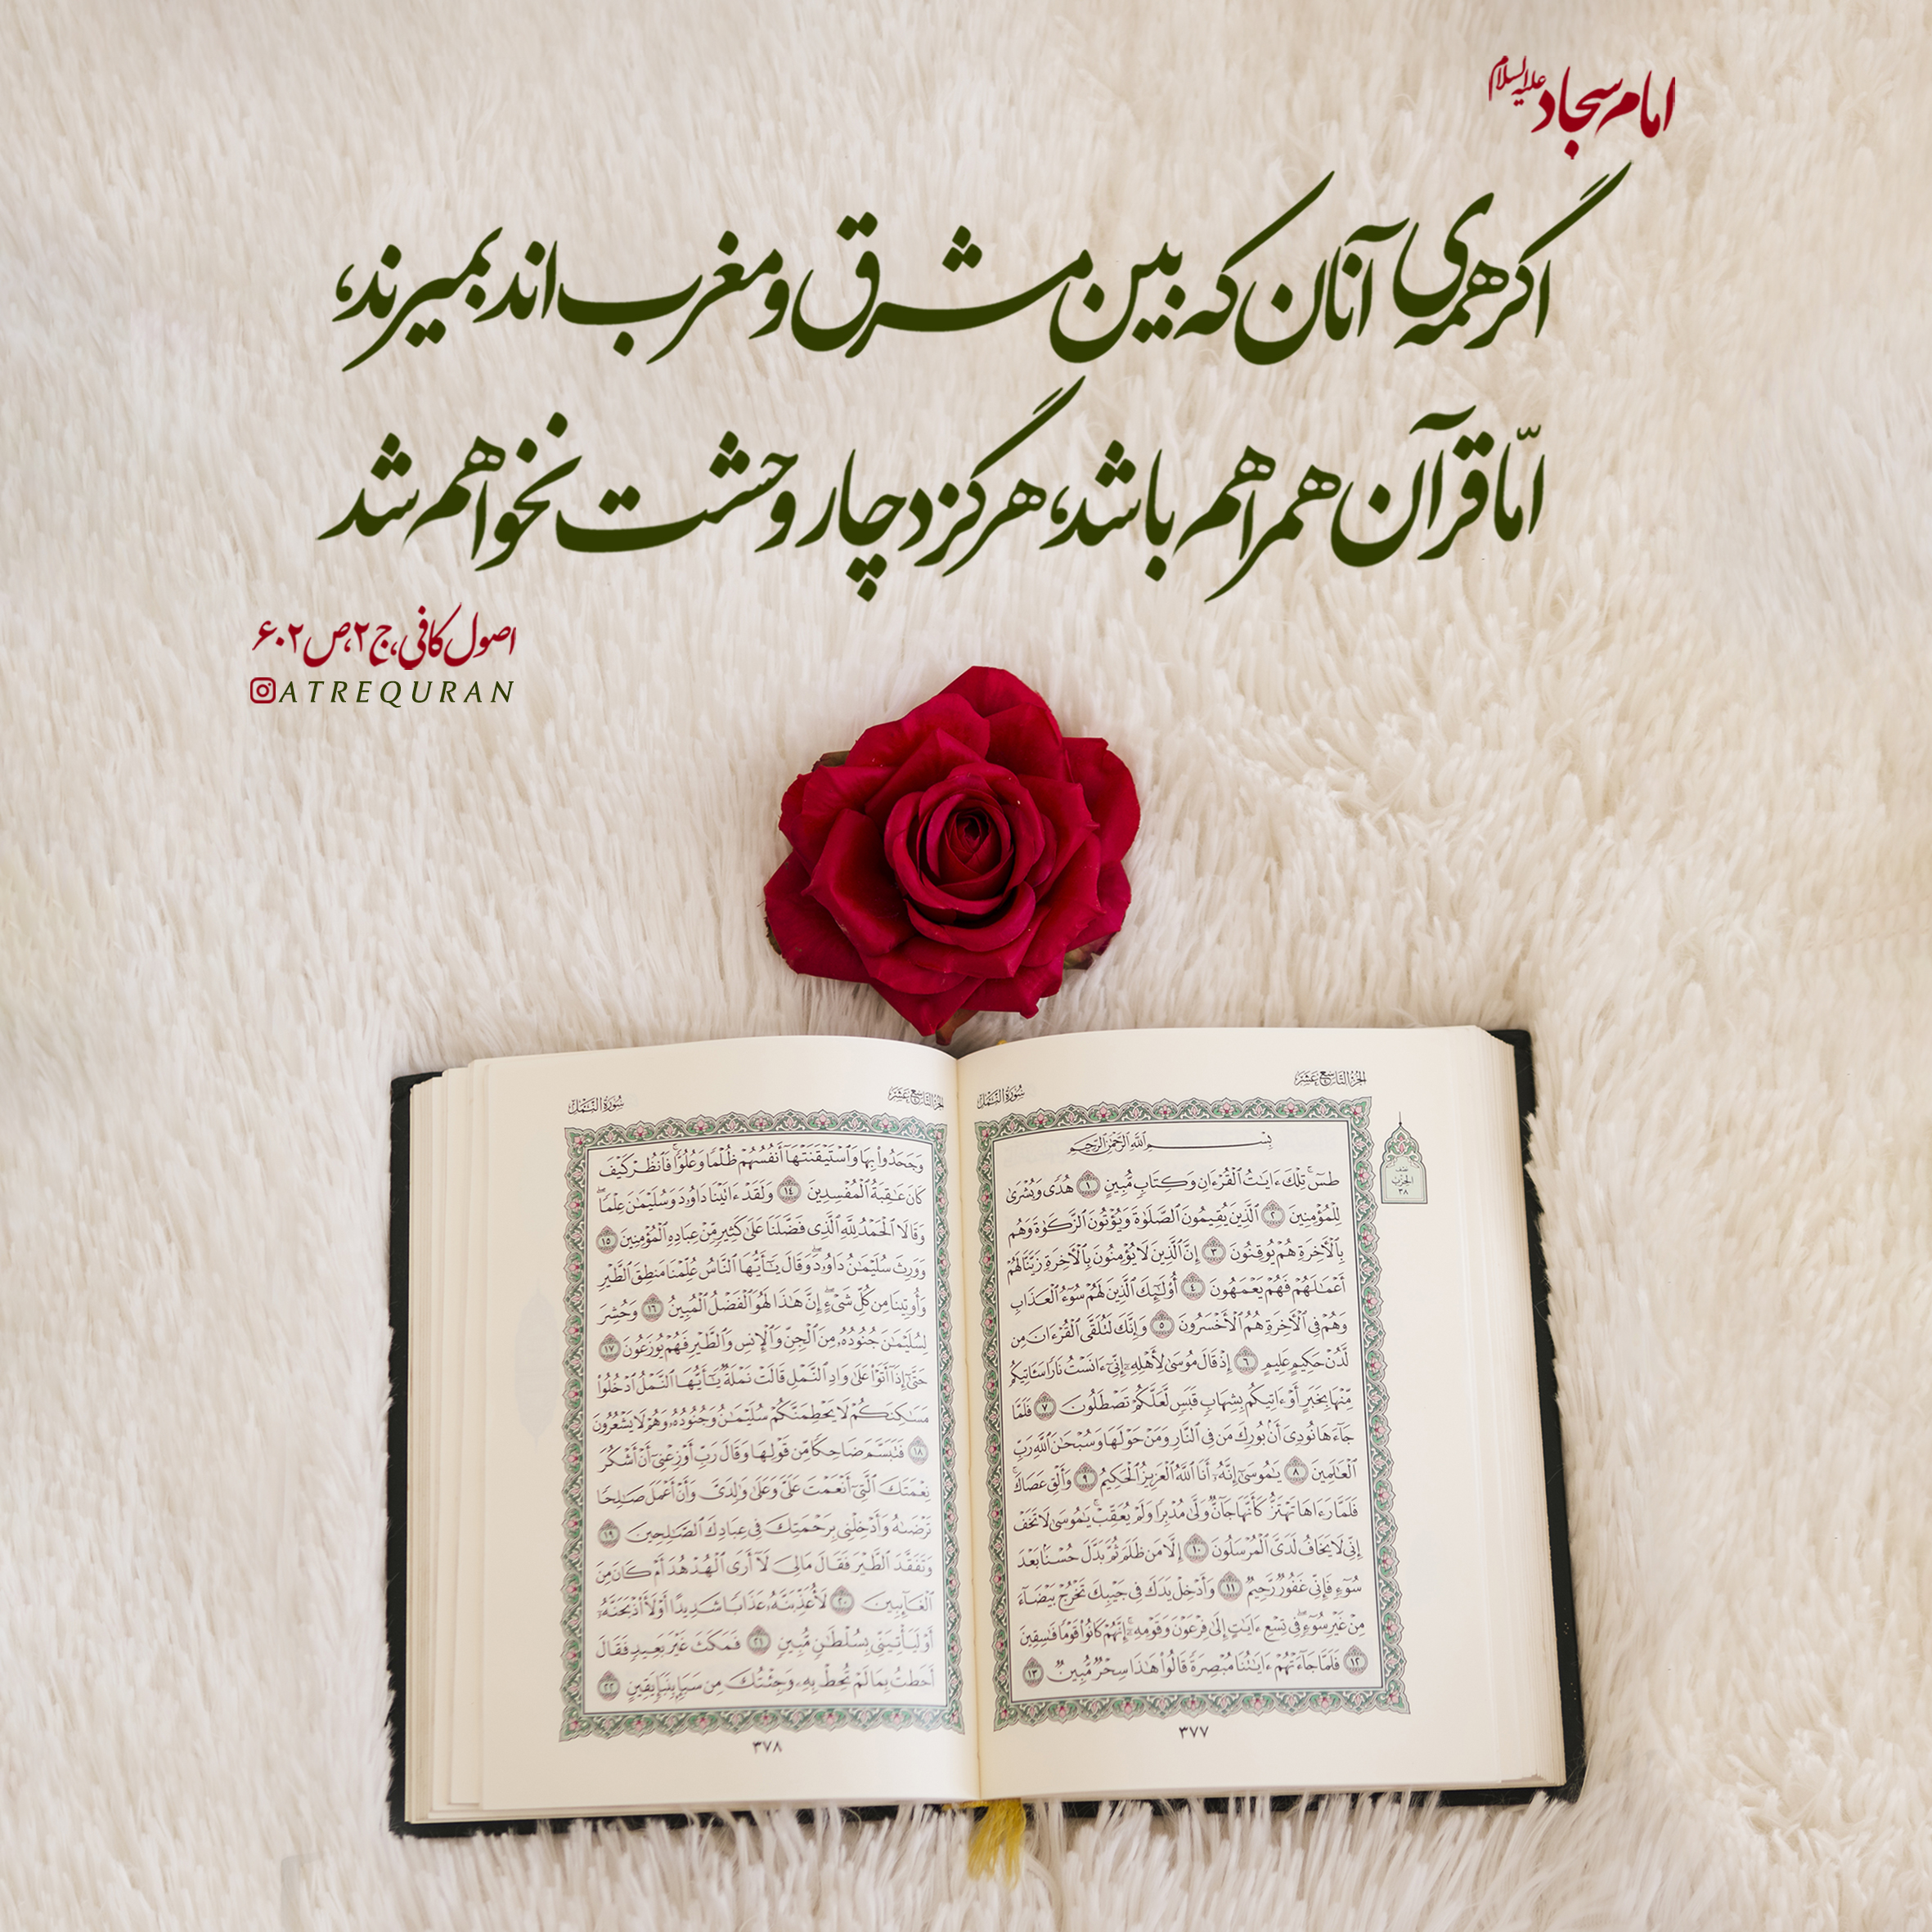 امام سجاد علیه‌السلام
اگر همه‌ی آنان که بین مشرق و مغرب‌اند بمیرند،
امّا قرآن همراهم باشد، هرگز دچار وحشت نخواهم شد
اصول کافی، ج۲، ص۶۰۲
ATREQURAN
الجزء التاسع عشر
سورة النمل
بِسْمِ اللَّهِ الرَّحْمَٰنِ الرَّحِيمِ
طسٓ ۚ تِلْكَ ءَايَٰتُ ٱلْقُرْءَانِ وَكِتَابٍ مُّبِينٍ ١ هُدًى وَبُشْرَىٰ
لِلْمُؤْمِنِينَ ٢ ٱلَّذِينَ يُقِيمُونَ ٱلصَّلَوٰةَ وَيُؤْتُونَ ٱلزَّكَوٰةَ وَهُم
بِٱلْءَاخِرَةِ هُمْ يُوقِنُونَ ٣ إِنَّ ٱلَّذِينَ لَا يُؤْمِنُونَ بِٱلْءَاخِرَةِ زَيَّنَّا لَهُمْ
أَعْمَٰلَهُمْ فَهُمْ يَعْمَهُونَ ٤ أُو۟لَٰٓئِكَ ٱلَّذِينَ لَهُمْ سُوٓءُ ٱلْعَذَابِ
وَهُمْ فِى ٱلْءَاخِرَةِ هُمُ ٱلْأَخْسَرُونَ ٥ وَإِنَّكَ لَتُلَقَّى ٱلْقُرْءَانَ مِن
لَّدُنْ حَكِيمٍ عَلِيمٍ ٦ إِذْ قَالَ مُوسَىٰ لِأَهْلِهِۦٓ إِنِّىٓ ءَانَسْتُ نَارًا سَـَٔاتِيكُم
مِّنْهَا بِخَبَرٍ أَوْ ءَاتِيكُم بِشِهَابٍ قَبَسٍ لَّعَلَّكُمْ تَصْطَلُونَ ٧ فَلَمَّا
جَآءَهَا نُودِىَ أَنۢ بُورِكَ مَن فِى ٱلنَّارِ وَمَنْ حَوْلَهَا وَسُبْحَٰنَ ٱللَّهِ رَبِّ
ٱلْعَٰلَمِينَ ٨ يَٰمُوسَىٰٓ إِنَّهُۥٓ أَنَا ٱللَّهُ ٱلْعَزِيزُ ٱلْحَكِيمُ ٩ وَأَلْقِ عَصَاكَ ۚ
فَلَمَّا رَءَاهَا تَهْتَزُّ كَأَنَّهَا جَآنٌّ وَلَّىٰ مُدْبِرًا وَلَمْ يُعَقِّبْ ۚ يَٰمُوسَىٰ لَا تَخَفْ
إِنِّى لَا يَخَافُ لَدَىَّ ٱلْمُرْسَلُونَ ١٠ إِلَّا مَن ظَلَمَ ثُمَّ بَدَّلَ حُسْنًۢا بَعْدَ
سُوٓءٍ فَإِنِّى غَفُورٌ رَّحِيمٌ ١١ وَأَدْخِلْ يَدَكَ فِى جَيْبِكَ تَخْرُجْ بَيْضَآءَ
مِنْ غَيْرِ سُوٓءٍ ۖ فِى تِسْعِ ءَايَٰتٍ إِلَىٰ فِرْعَوْنَ وَقَوْمِهِۦٓ ۚ إِنَّهُمْ كَانُوا۟ قَوْمًا فَٰسِقِينَ
١٢ فَلَمَّا جَآءَتْهُمْ ءَايَٰتُنَا مُبْصِرَةً قَالُوا۟ هَٰذَا سِحْرٌ مُّبِينٌ ١٣
٣٧٧
نصف
الحزب
٣٨
الجزء التاسع عشر
سورة النمل
وَجَحَدُوا۟ بِهَا وَٱسْتَيْقَنَتْهَآ أَنفُسُهُمْ ظُلْمًا وَعُلُوًّا ۚ فَٱنظُرْ كَيْفَ
كَانَ عَٰقِبَةُ ٱلْمُفْسِدِينَ ١٤ وَلَقَدْ ءَاتَيْنَا دَاوُۥدَ وَسُلَيْمَٰنَ عِلْمًا ۖ
وَقَالَا ٱلْحَمْدُ لِلَّهِ ٱلَّذِى فَضَّلَنَا عَلَىٰ كَثِيرٍ مِّنْ عِبَادِهِ ٱلْمُؤْمِنِينَ ١٥
وَوَرِثَ سُلَيْمَٰنُ دَاوُۥدَ ۖ وَقَالَ يَٰٓأَيُّهَا ٱلنَّاسُ عُلِّمْنَا مَنطِقَ ٱلطَّيْرِ
وَأُوتِينَا مِن كُلِّ شَىْءٍ ۖ إِنَّ هَٰذَا لَهُوَ ٱلْفَضْلُ ٱلْمُبِينُ ١٦ وَحُشِرَ
لِسُلَيْمَٰنَ جُنُودُهُۥ مِنَ ٱلْجِنِّ وَٱلْإِنسِ وَٱلطَّيْرِ فَهُمْ يُوزَعُونَ ١٧
حَتَّىٰٓ إِذَآ أَتَوْا۟ عَلَىٰ وَادِ ٱلنَّمْلِ قَالَتْ نَمْلَةٌ يَٰٓأَيُّهَا ٱلنَّمْلُ ٱدْخُلُوا۟
مَسَٰكِنَكُمْ لَا يَحْطِمَنَّكُمْ سُلَيْمَٰنُ وَجُنُودُهُۥ وَهُمْ لَا يَشْعُرُونَ
١٨ فَتَبَسَّمَ ضَاحِكًا مِّن قَوْلِهَا وَقَالَ رَبِّ أَوْزِعْنِىٓ أَنْ أَشْكُرَ
نِعْمَتَكَ ٱلَّتِىٓ أَنْعَمْتَ عَلَىَّ وَعَلَىٰ وَٰلِدَىَّ وَأَنْ أَعْمَلَ صَٰلِحًا
تَرْضَىٰهُ وَأَدْخِلْنِى بِرَحْمَتِكَ فِى عِبَادِكَ ٱلصَّٰلِحِينَ ١٩
وَتَفَقَّدَ ٱلطَّيْرَ فَقَالَ مَالِىَ لَآ أَرَى ٱلْهُدْهُدَ أَمْ كَانَ مِنَ
ٱلْغَآئِبِينَ ٢٠ لَأُعَذِّبَنَّهُۥ عَذَابًا شَدِيدًا أَوْ لَأَا۟ذْبَحَنَّهُۥٓ
أَوْ لَيَأْتِيَنِّى بِسُلْطَٰنٍ مُّبِينٍ ٢١ فَمَكَثَ غَيْرَ بَعِيدٍ فَقَالَ
أَحَطتُ بِمَا لَمْ تُحِطْ بِهِۦ وَجِئْتُكَ مِن سَبَإٍۭ بِنَبَإٍ يَقِينٍ ٢٢
٣٧٨